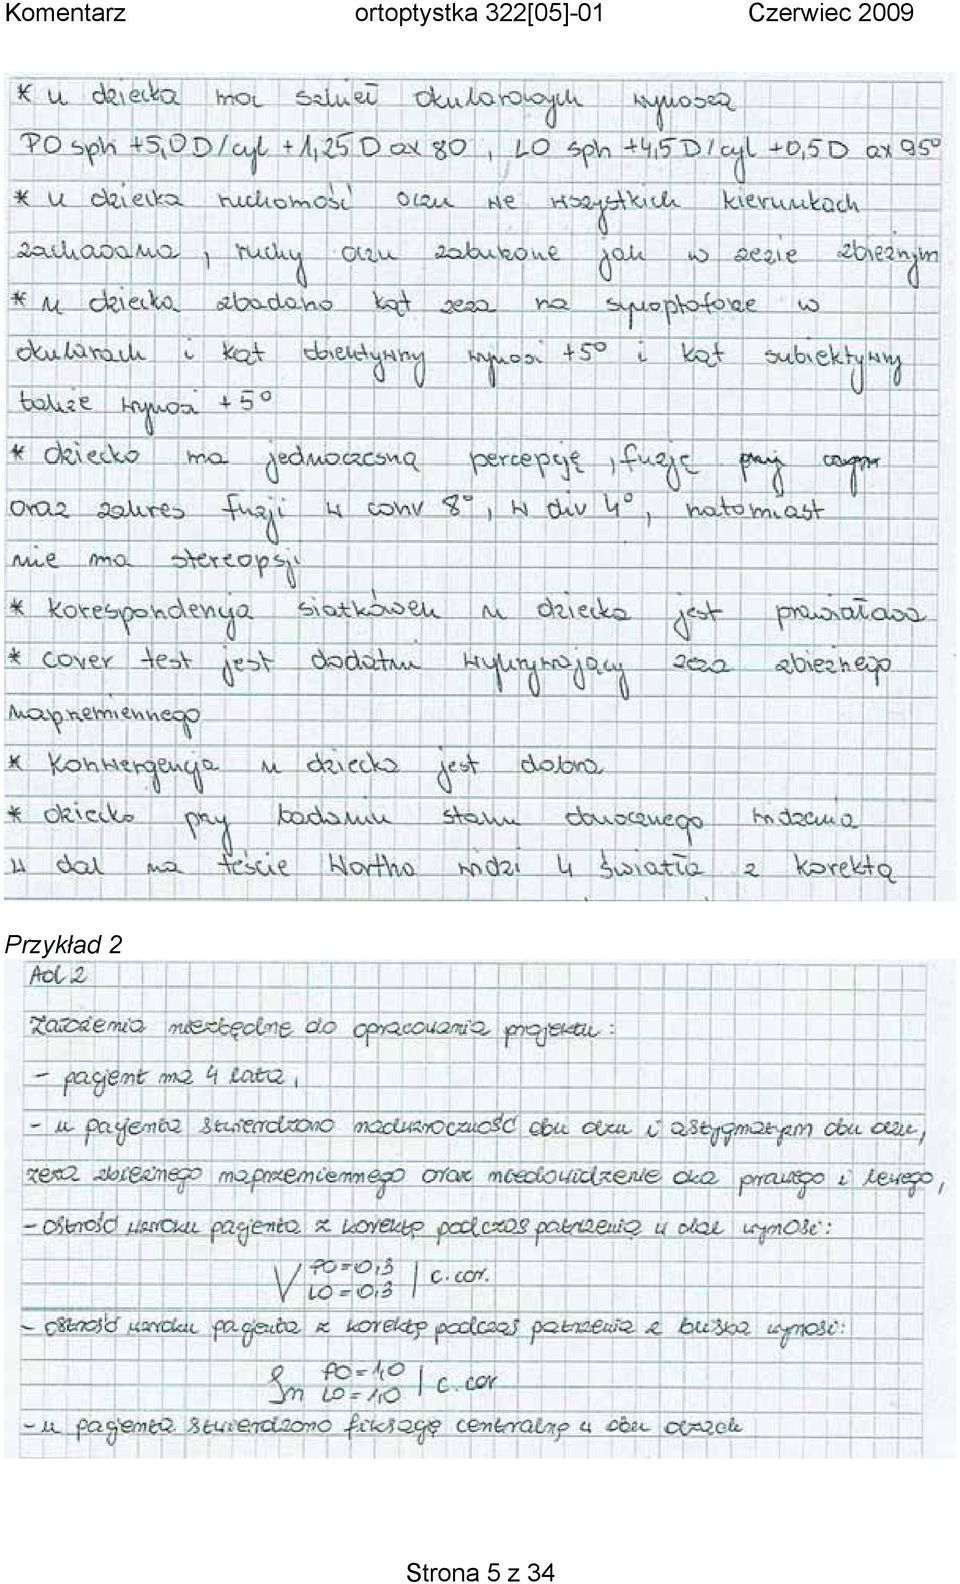 Komentarz ortoptystka 322[05]-01 Czerwiec 2009
* u dziecka moc szkieł okularowych wynoszą
PO sph +5,0 D/cyl +1,25 D ax 80, LO sph +4,5 D/cyl +0,5 D ax 95°
* u dziecka ruchomość oczu we wszystkich kierunkach
zachowana, ruchy oczu zaburzone jak w zezie zbieżnym
* u dziecka zbadano kąt zeza na synoptoforze w
okularach i kąt obiektywny wynosi +5° i kąt subiektywny
także wynosi +5°
* dziecko ma jednoczesną percepcję, fuzję przy
oraz zakres fuzji w conv 8°, w div 4°, natomiast
nie ma stereopsji
* korespondencja siatkówek u dziecka jest prawidłowa
* cover test jest dodatni wykrywający zeza zbieżnego
naprzemiennego
* Konwergencja u dziecka jest dobra
* dziecko przy badaniu stanu obuocznego widzenia
w dal na teście Wortha widzi 4 światła z korektą
Przykład 2
Ad 2
Założenia niezbędne do opracowania projektu:
- pacjent ma 4 lata,
- u pacjenta stwierdzono nadwzroczność obu oczu i astygmatyzm obu oczu,
zeza zbieżnego naprzemiennego oraz niedowidzenie oka prawego i lewego,
- ostrość wzroku pacjenta z korektą podczas patrzenia w dal wynosi:
V PO = 0,3 | c. cor.
LO = 0,3
- ostrość wzroku pacjenta z korektą podczas patrzenia z bliska wynosi:
Sn PO = 1,0 | c. cor
LO = 1,0
- u pacjenta stwierdzono fiksację centralną w obu oczach
Strona 5 z 34